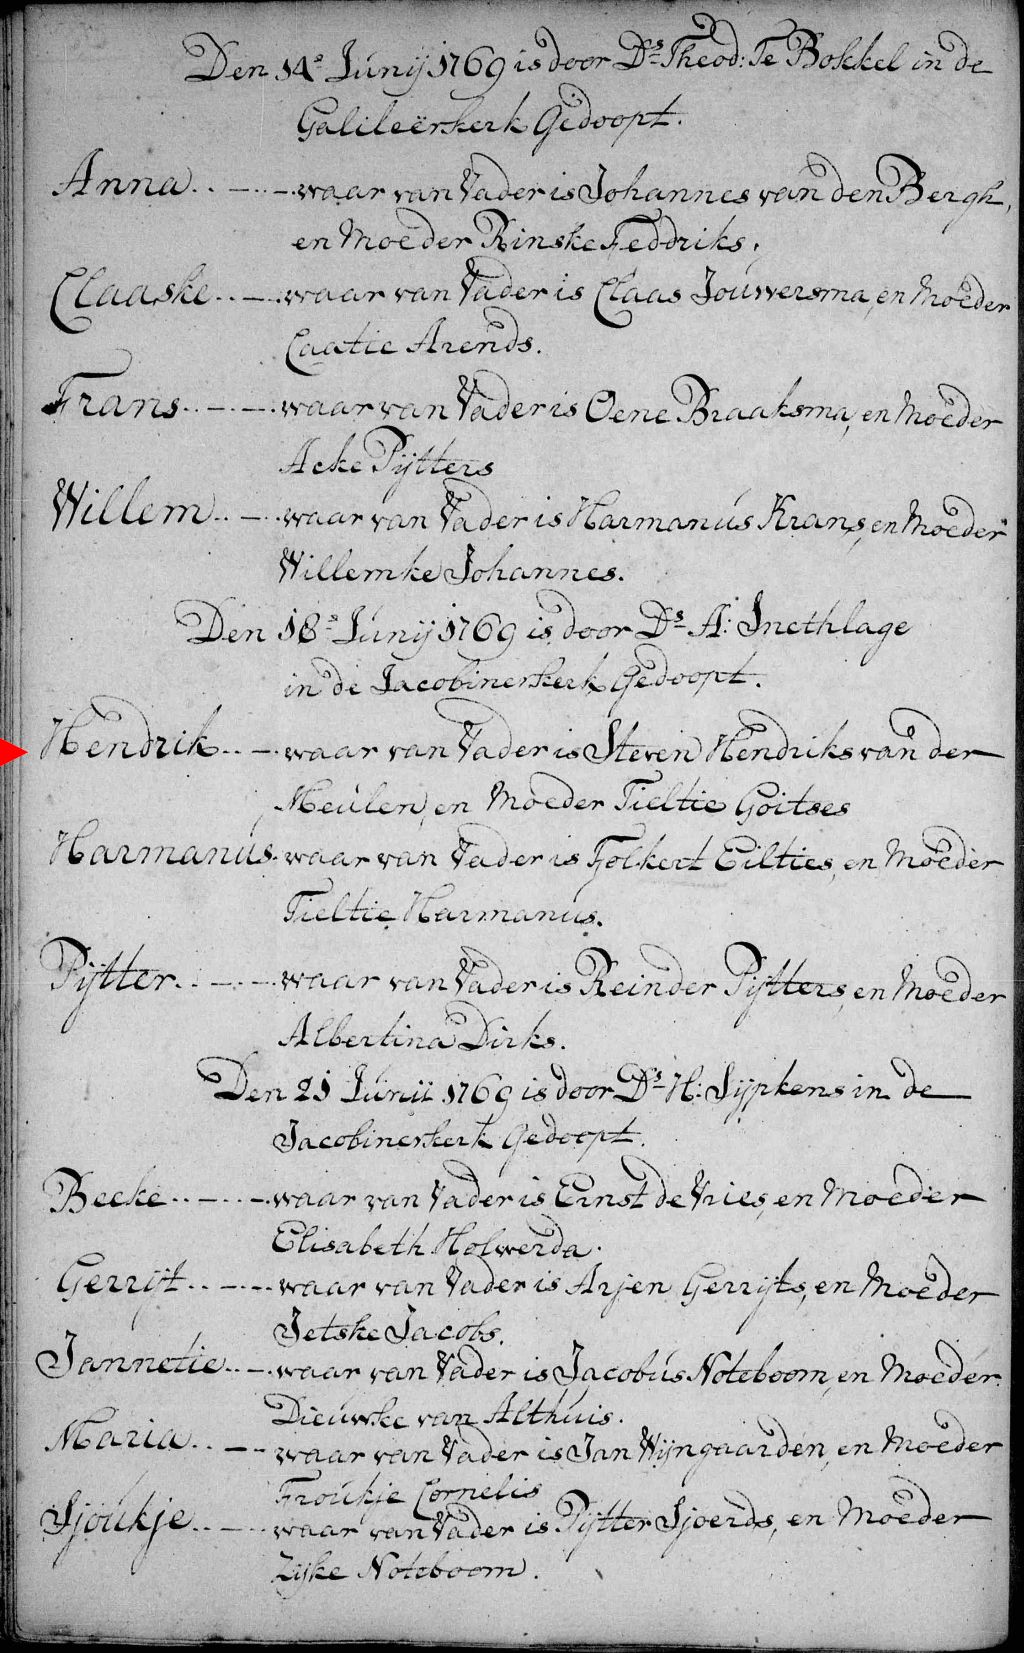 Den 14e Junij 1769 is door Ds Theod: Te Bokkel in de
Galileërkerk Gedoopt.
Anna..-..-waar van Vader is Johannes van den Bergh,
en Moeder Rinske Feddriks,
Claaske..-..waar van Vader is Claas Jouwersma, en Moeder
Caatie Arends.
Frans..-.-.waar van Vader is Oene Braaksma, en Moeder
Acke Pijtters
Willem..-..waar van Vader is Harmanús Krans, en Moeder
Willemke Johannes.
Den 18e Junij 1769 is door Ds A: Snethlage
in de Jacobinerkerk Gedoopt.
Hendrik..-.waar van Vader is Steven Hendriks van der
Meúlen, en Moeder Tieltie Goitses
Harmanús.waar van Vader is Folkert Eilties, en Moeder
Tieltie Harmanus.
Pijtter..-.-.waar van Vader is Reinder Pijtters, en Moeder
Albertina Dirks.
Den 21 Junii 1769 is door Ds H: Sijpkens in de
Jacobinerkerk Gedoopt.
Beeke..-..-.waar van Vader is Ernst de Vries, en Moeder
Elisabeth Holwerda.
Gerrijt..-..-waar van Vader is Arjen Gerrijts, en Moeder
Jetske Jacobs.
Jannetie..-.waar van Vader is Jacobús Noteboom, en Moeder
Dieuwke van Althúis.
Maria..-..-waar van Vader is Jan Wijngaarden, en Moeder
Froukje Cornelis
Sjoúkje..-..waar van Vader is Pijtter Sjoerds, en Moeder
Zijke Noteboom.